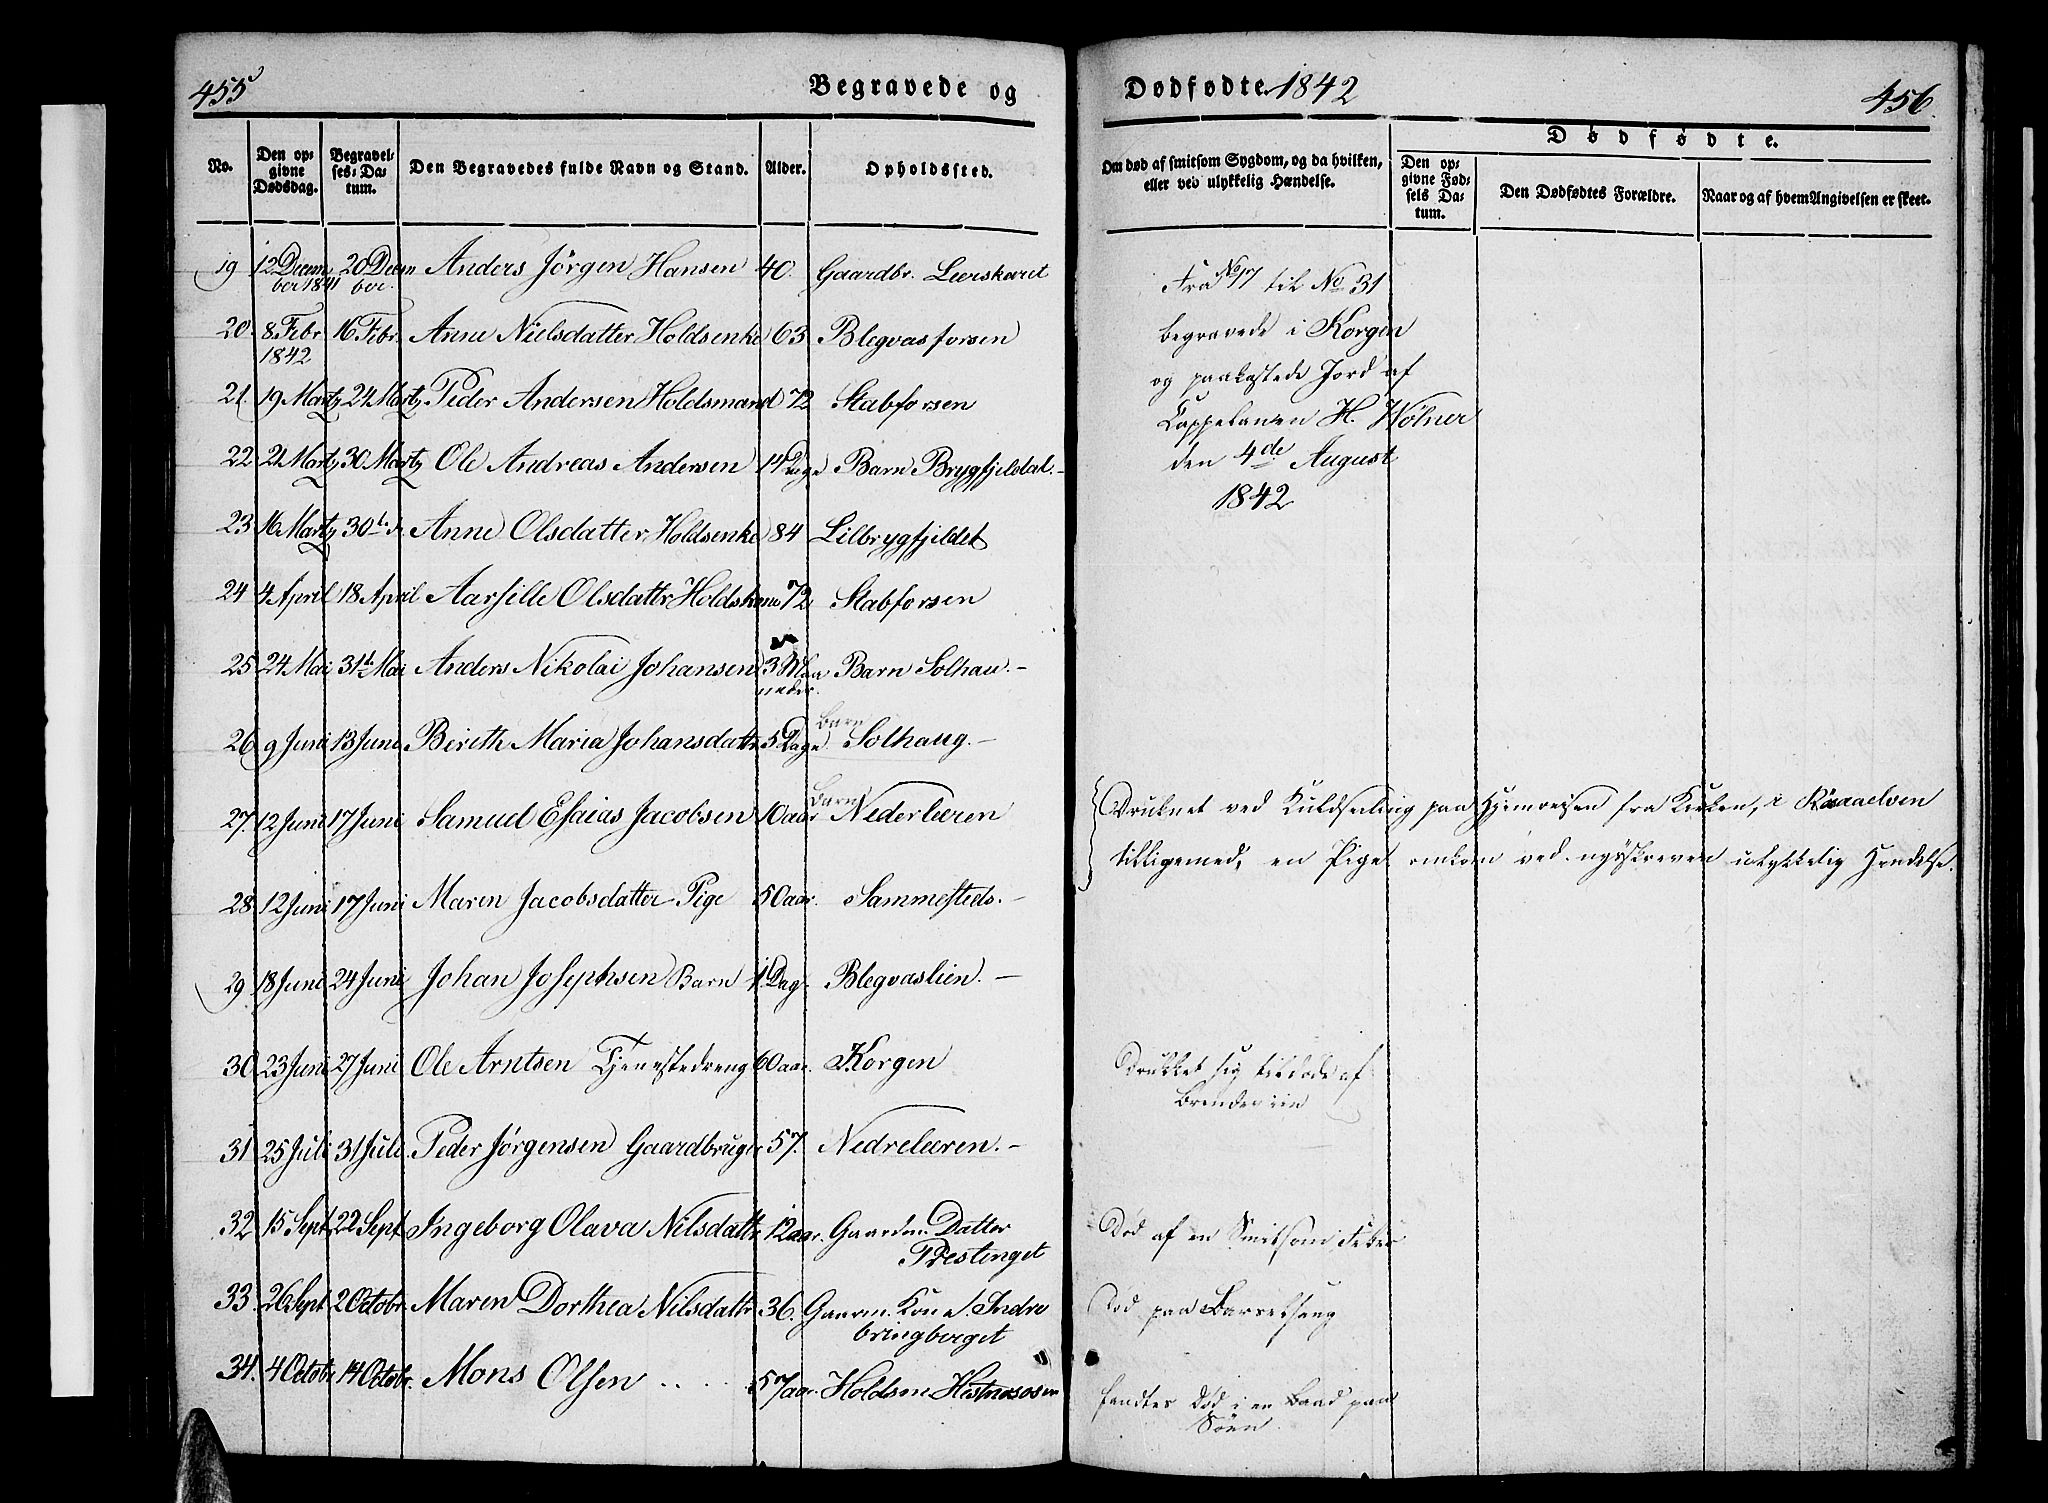 455
Begravede og
No.
Den opgivne Dødsdag.
Begravelses-Datum.
Den Begravedes fulde Navn og Stand.
Alder.
Opholdssted.
19 12 Decem 20 Decem Anders Jörgen Hansen 40. Gaardbr. Leerskaret
ber 1841 ber.
20. 8. Febr 16 Febr. Anne Nielsdatter Holdsenke 63 Blegvasforsen
1842
21. 19 Martz 24 Martz Peder Andersen Holdsmand 72 Stabforsen
22. 21 Martz 30 Martz Ole Andreas Andersen 14 Dage Barn Brygfjeldal.-
23 16 Martz 30 Anne Olsdatter Holdsenke 84 Lilbrygfjeldet
24 4 April 18 April Aarsille Olsdattr Holdskone 72 Stabforsen
25 24 Mai 31 Mai Anders Nikolai Johansen 3 Maa Barn Solhau.-
neder.
Barn
26 9 Juni 13 Juni Bereth Maria Johansdattr 5 Dage. Solhaug.-
Barn
27. 12 Juni 17 Juni Samuel Esaias Jacobsen 10 aar Nederleeren
28. 12 Juni 17 Juni Maren Jacobsdatter Pige 50 aar. Sammesteds.-
29. 18 Juni 24 Juni Johan Josephsen Barn 1. Dag. Blegvaslien.-
30. 23 Juni 27 Juni Ole Arntsen Tjenestedreng 60 aar. Korgen
31 25 Juli 31 Juli Peder Jørgensen Gaardbruger 57. Nedreleeren.-
32 15 Sept. 22 Sept. Ingeborg Olava Nilsdattr 12 aar. Gaardm. Datter
Prestinget
33. 26 Sept 2 Octobr. Maren Dorthea Nilsdattr 36. Gaarm. Kone Indre
bringberget
34. 4 Octobr 14 Octobr. Mons Olsen 57 aar. Holdsm
Dødfødte 1842
456.
Dødfødte.
Om død af smitsom Sygdom, og da hvilken,
eller ved ulykkelig Hændelse.
Den opgivne Fødsels Datum.
Den Dødfødtes Forældre.
Naar og af hvem Angivelsen er skeet.
Fra No 17 til No 31
begravede i Korgen
og paakastede Jord af
Cappelanen H. Wölner
den 4de August
1842
Druknet ved Kuldseiling paa Hjemreisen fra Kirken, i
tilligemed, en Pige omkom ved ulykkelig Hendelse.
Drukket sig tildöde af
Brendeviin
Död af en Smitsom Feber
Död paa Barselseng
fandtes Död i en Baad paa
Söen.